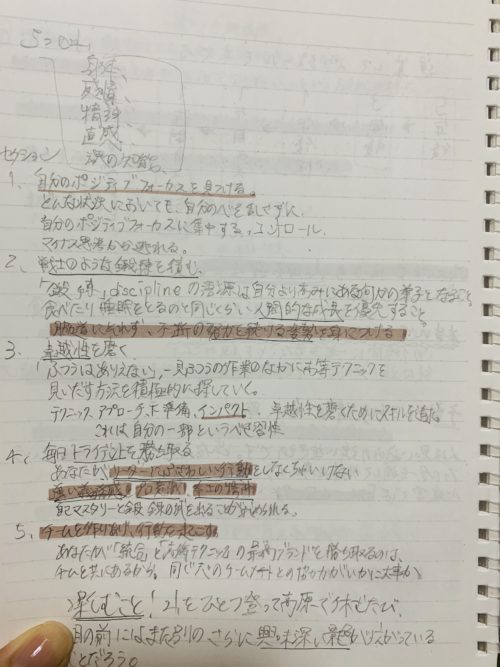 5つの山
身体、
感情、
精神、
直感、
セクション
1、自分のポジティブフォーカスを見つける。
どんな状況においても、自分の心を乱さずに、
自分のポジティブフォーカスに集中する。コントロール。
マイナス思考から逃れる。
2、戦士のような鍛錬を積む。
「鍛錬」disciplineの語源は自分より高みにある何かの弟子となること。
食べたり睡眠をとるのと同じくらい人間的な成長を優先すること。
不断の努力を続ける姿勢を身につける。
3、卓越性を磨く
「ふつうはありえない」、一見ふつうの作業のなかに高等テクニックを
見いだす方法を積極的に探していく。
テクニック、アプローチ、下準備、インパクト 卓越性を磨くためにスキルを
これは自分の一部というべき習性
4、毎日トライデントを勝ち取る
あなたが、リーダーにふさわしい行動をしなくちゃいけない
強い
自己マスタリーと鍛錬の
5、チームを作りあげ、行動を
あなたが「統合」と「高等テクニック」の最高ブランドを勝ち取るのは、
チームと共にあるから。同じ穴のチームメイトとの協力がいかに大事か
楽しむこと！山をひとつ登って高原で休むたび、
目の前にはまた別のさらに興味深い景色が広がっている
ことだろう。